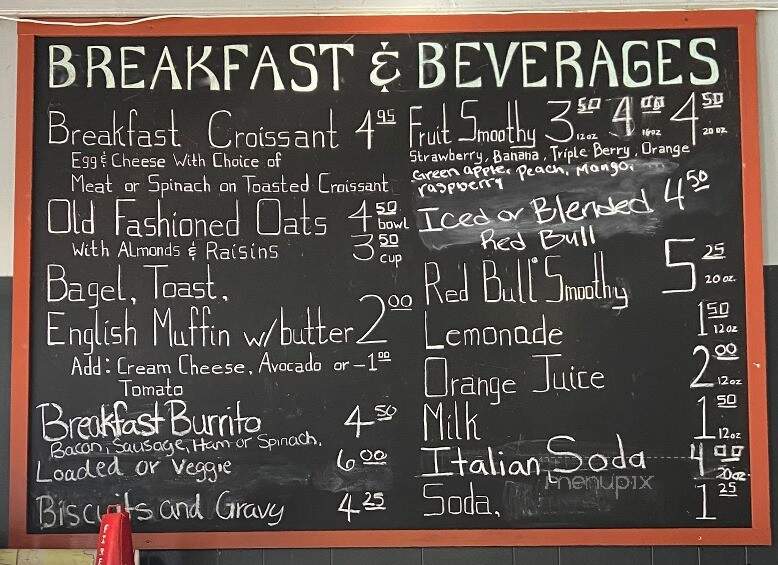 BREAKFAST & BEVERAGES
Breakfast Croissant 4 95
Egg & Cheese With Choice of
Meat or Spinach on Toasted Croissant
Old Fashioned Oats 4 50 bowl
With Almonds & Raisins 3 50 cup
Bagel, Toast,
English Muffin w/butter 2 00
Add: Cream Cheese, Avocado or – 1 00
Tomato
Breakfast Burrito 4 50
Bacon, Sausage, Ham or Spinach,
Loaded or Veggie 6 00
Biscuits and Gravy 4 25
Fruit Smoothy 3 50 12oz 4 00 16oz 4 50 20oz
Strawberry, Banana, Triple Berry, Orange
Green apple, Peach, Mango,
raspberry
Iced or Blended 4 50
Red Bull
Red Bull Smoothy 5 25 20oz.
Lemonade 1 50 12oz
Orange Juice 2 00 12oz
Milk 1 50 12oz
Italian Soda 4 00 20oz.
menupix
Soda, 1 25
FIRE